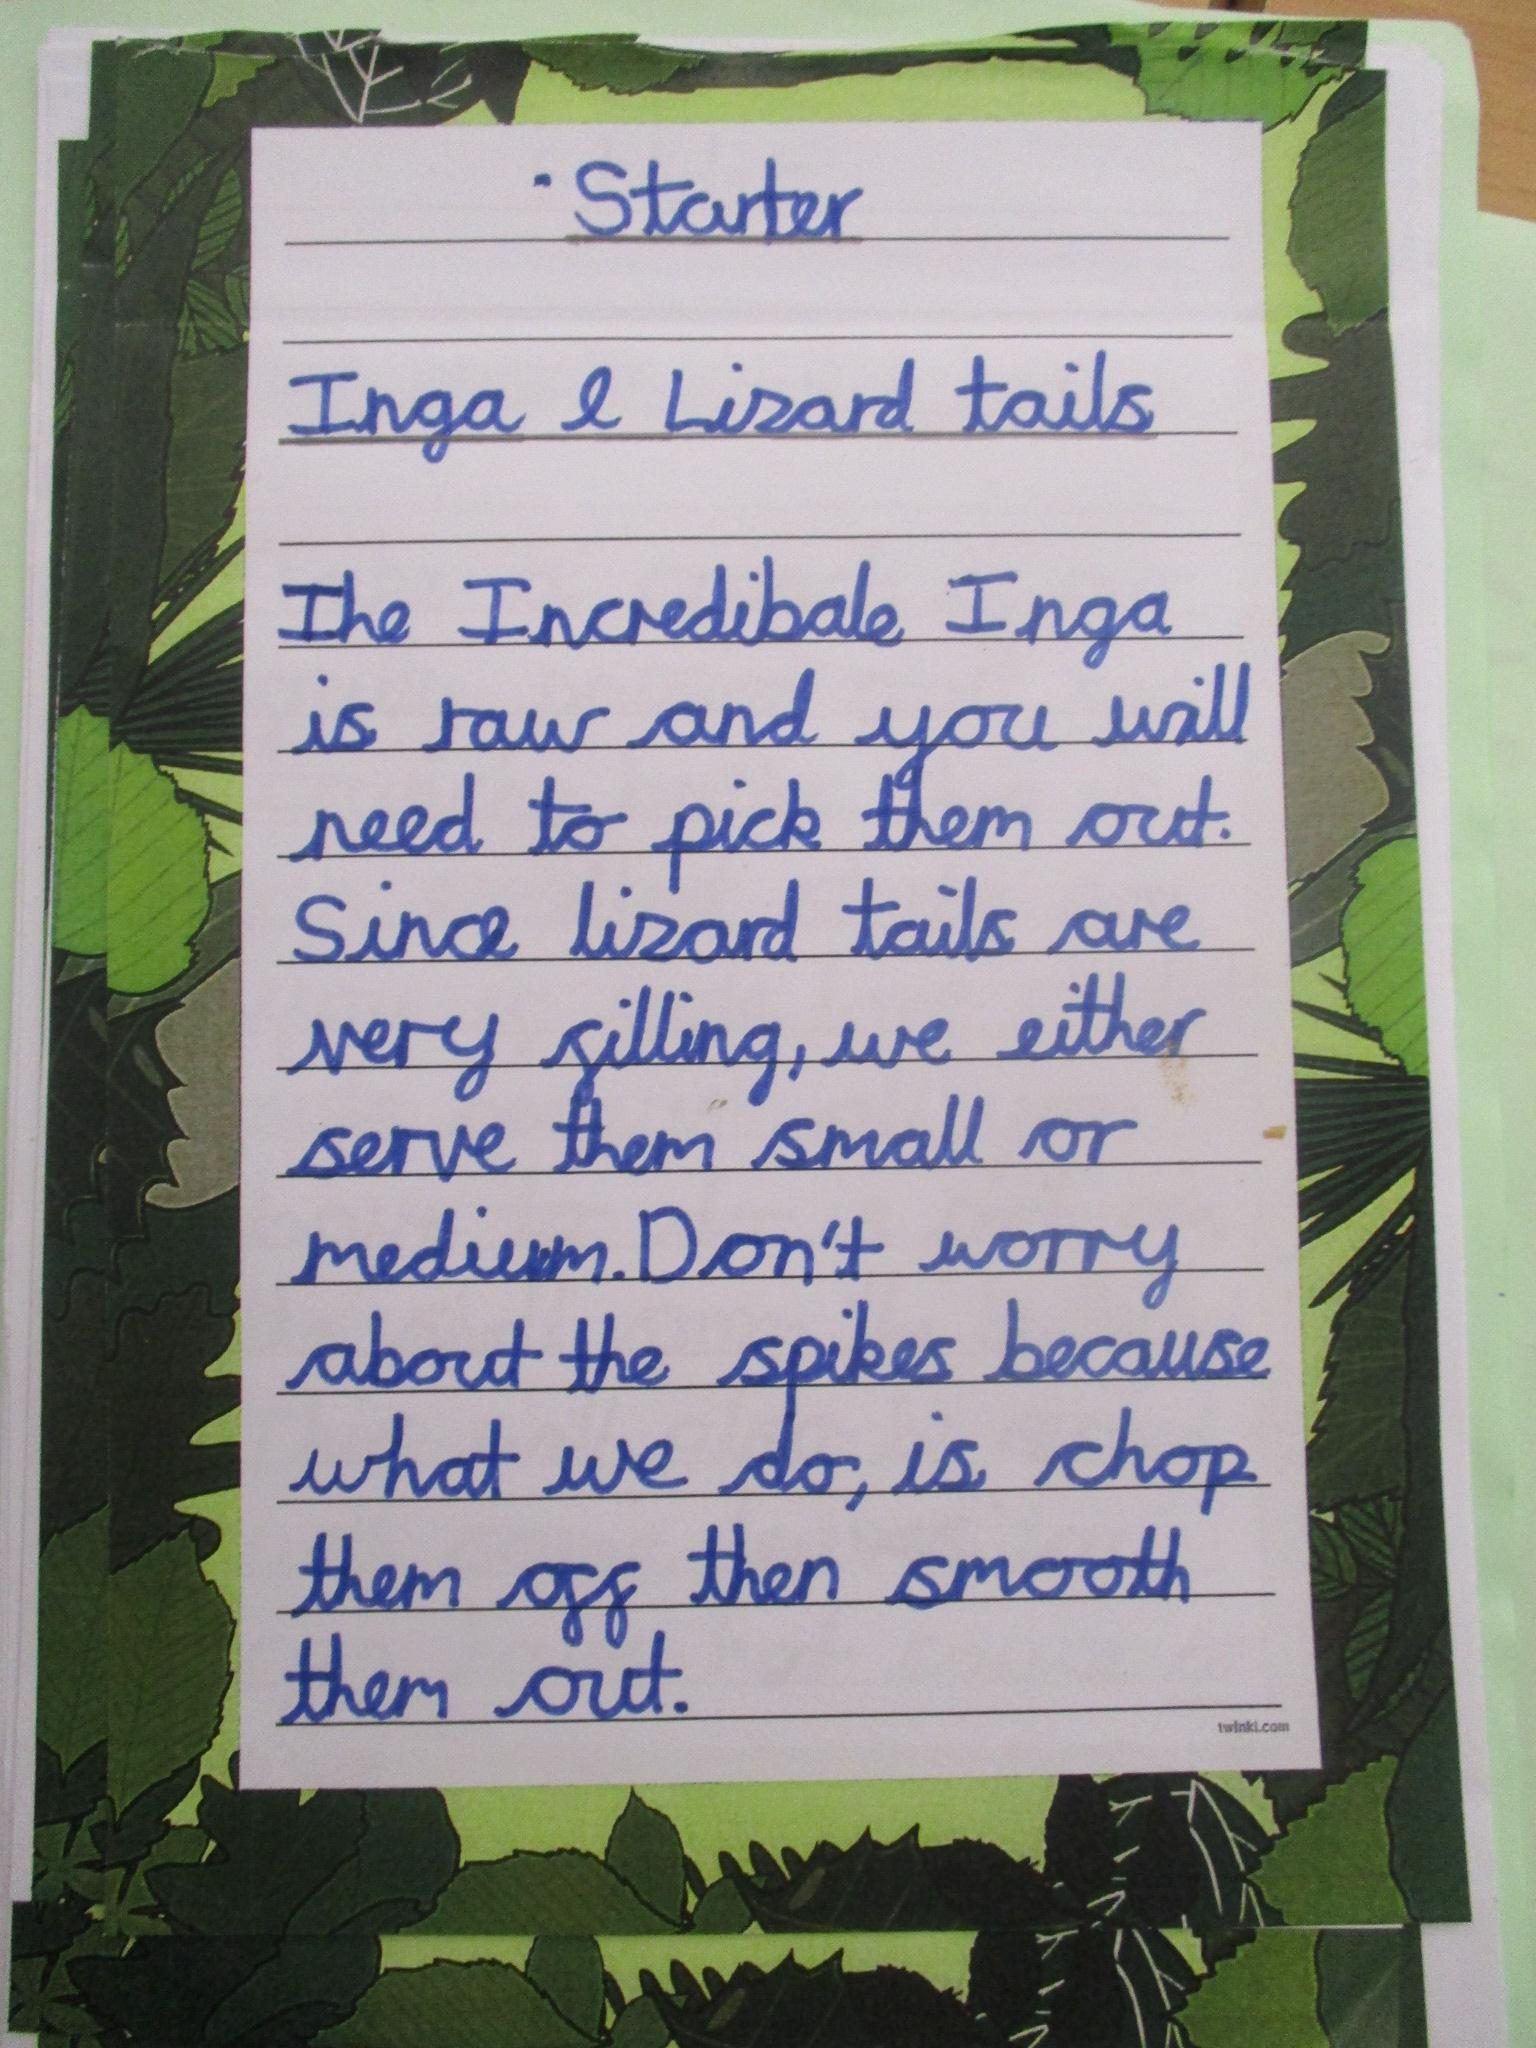 Starter
Inga & Lizard tails
The Incredibale Inga
is raw and you will
need to pick them out.
Since lizard tails are
very filling, we either
serve them small or
medium. Don't worry
about the spikes because
what we do, is chop
them off then smooth
them out.
twinkl.com